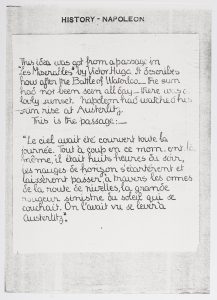 HISTORY - NAPOLEON
This idea was got from a passage in
"Les Miserables" by Victor Hugo. It describes
how after the Battle of Waterloo the sun
had not been seen all day there was a
lovely sunset. Napoleon had watched his
sun rise at Austerlitz.
This is the passage:-
"Le ciel avait été couvert toute la
journée. Tout à coup en ce moment là
même, il était huits heures du soir,
les nuages de horizon s'écartèrent et
laissèrent passer, à travers les ormes
de la route de nivelles, la grande
rougeur sinistre du soleil qui se
couchait. On l'avait vu se lever à
Austerlitz".